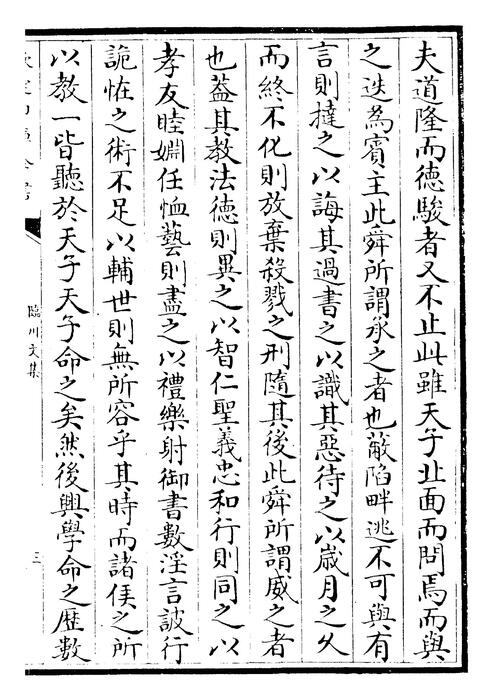 夫道隆而德駿者又不止此雖天子北面而問焉而與
之迭為賓主此舜所謂承之者也蔽陷畔逃不可與有
言則撻之以誨其過書之以識其惡待之以歲月之久
而終不化則放棄殺戮之刑隨其後此舜所謂威之者
也蓋其教法德則異之以智仁聖義忠和行則同之以
孝友睦婣任恤藝則盡之以禮樂射御書數淫言詖行
詭恠之術不足以輔世則無所容乎其時而諸侯之所
以教一皆聽於天子天子命之矣然後興學命之歷數
臨川文集
三